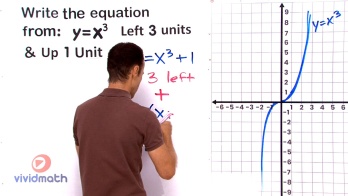 Write the equation
from: y=x³ Left 3 units
& Up 1 Unit
=x³+1
3 left
+
(x
y=x³
9
8
7
6
5
4
3
2
1
-6 -5 -4 -3 -2 -1 0 1 2 3 4 5 6
-1
-2
-3
-4
-5
-6
-7
-8
-9
vividmath